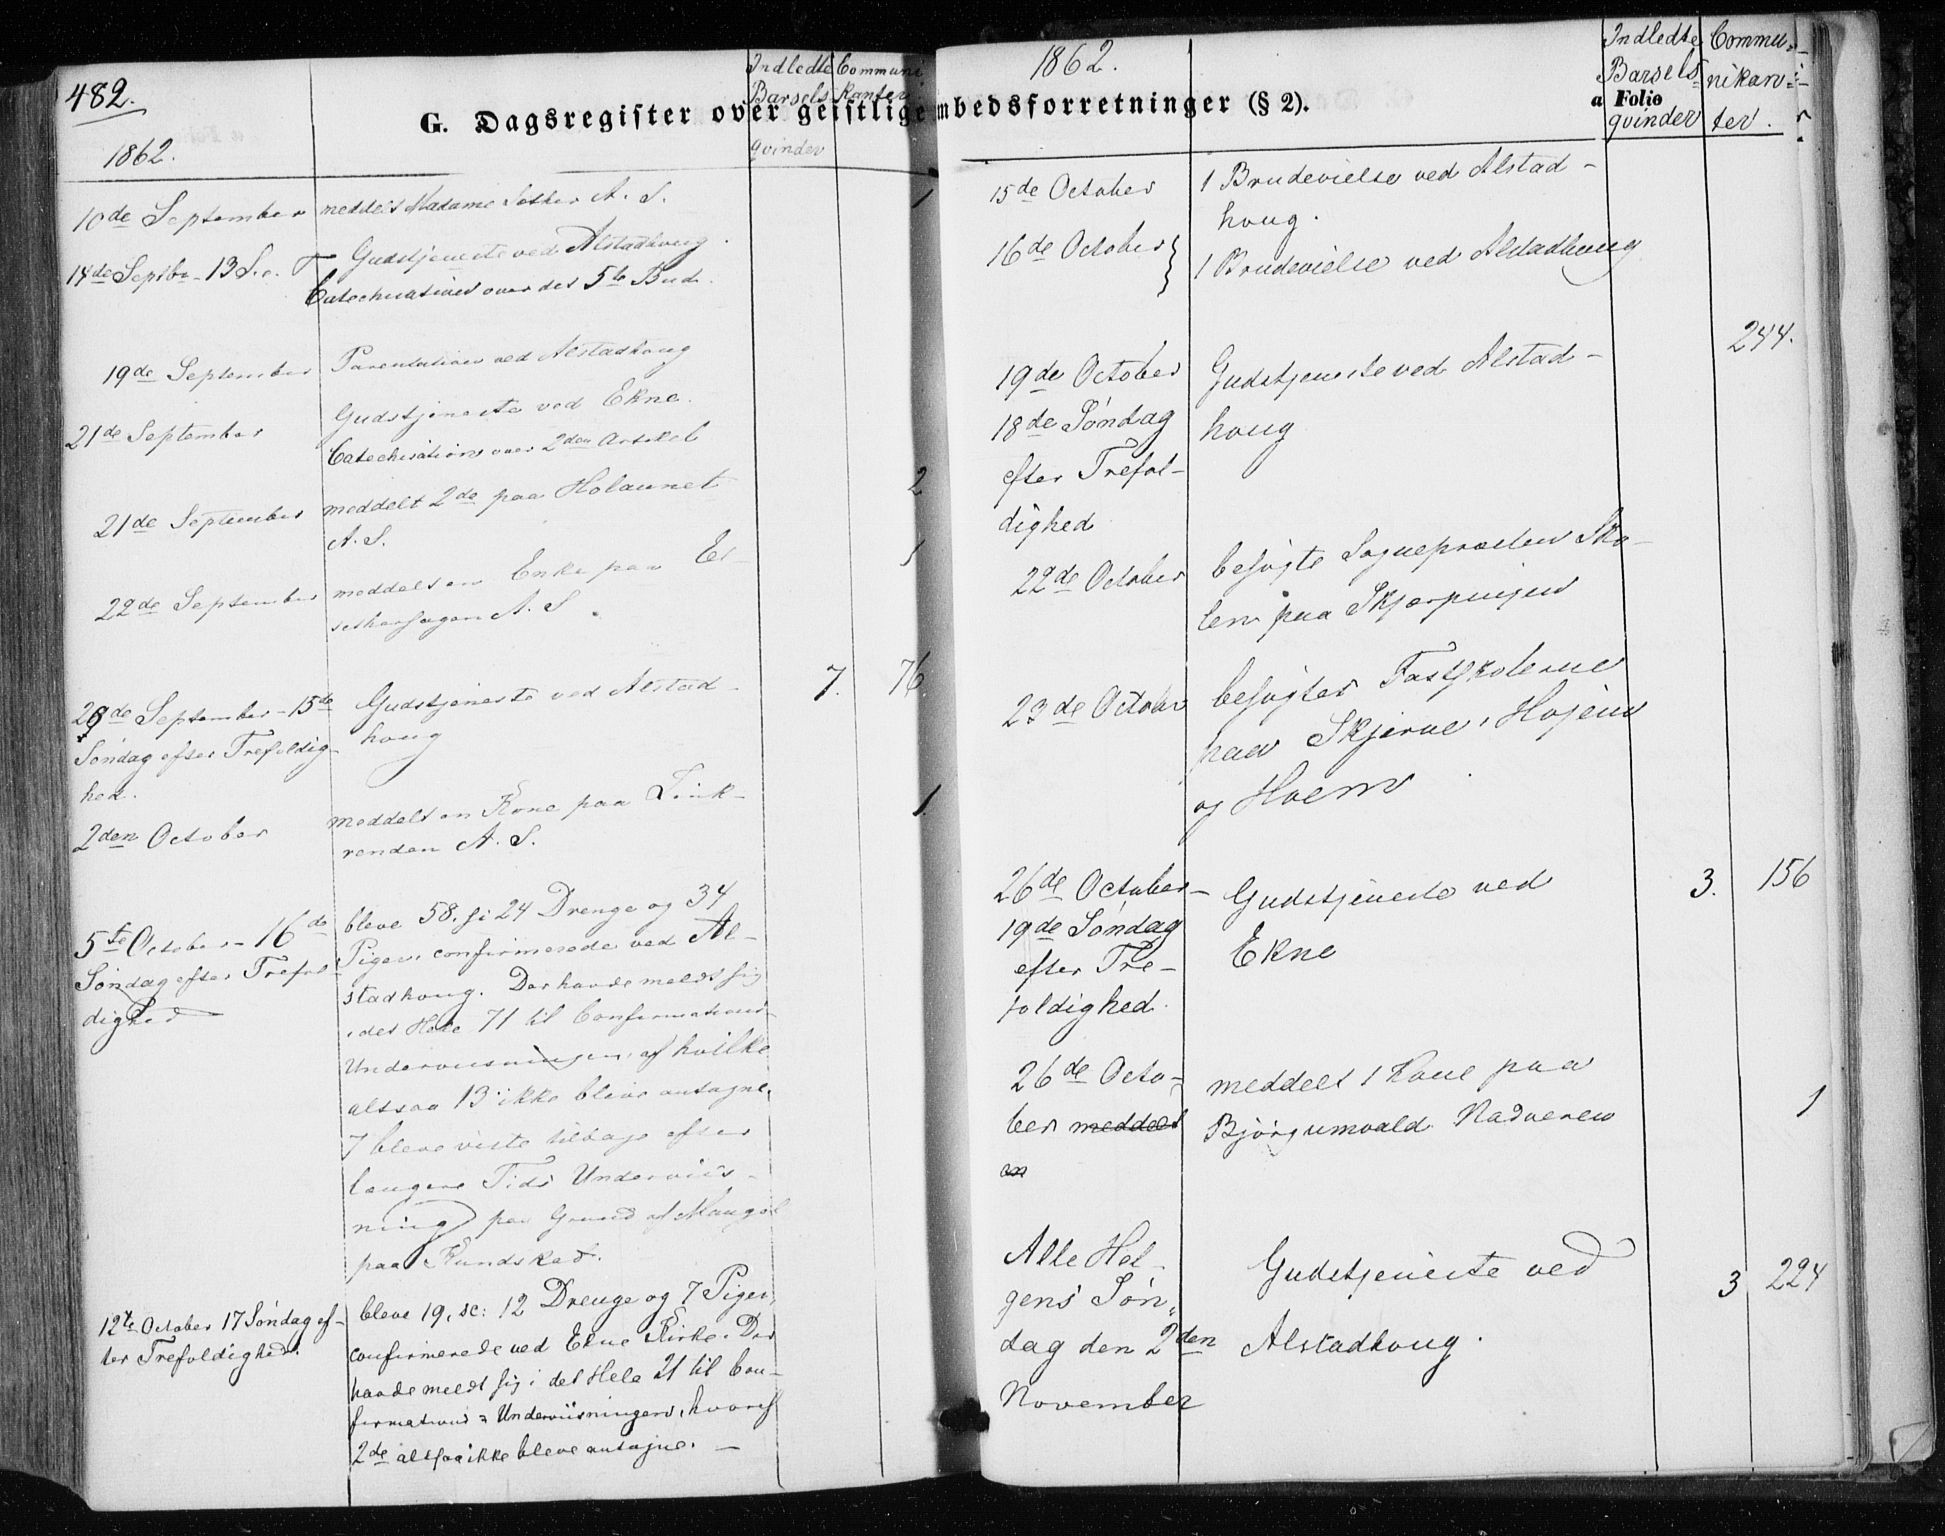 482.
G. Dagsregister over geistlige
Indledte Barsels qvinder
Communikanter
1862.
10de September meddelt Madame A. S. 1
14de Septbr - 13 S. e. T Gudstjeneste ved Alstadhoug.
Catechisation over det 5te Bud.
19de September Parentation ved Alstadhoug
21de September Gudstjeneste ved Ekne.
Catechisation over 2den Artikel
21de September meddelt 2de paa Holaunet 2
A. S.
22de September meddelt en Enke paa 1
A. S.
28de September - 15de Gudstjeneste ved Alstad- 7. 76
Søndag efter Trefoldig- houg
hed.
2den October meddelt en Kone paa Tink- 1.
renden A. S.
5te October - 16de bleve 58. sc: 24 Drenge og 34
Søndag efter Trefol- Piger, confirmerede ved Al-
dighed stadhoug. Der havde meldt sig
i det Hele 71 til Confirmations-
Underviisningen, af hvilke
altsaa 13 ikke bleve antagne,
7 bleve viste tilbage efter
længere Tids Underviis-
ning paa Grund af Mangel
paa Kundskab.
12te October 17 Søndag ef- bleve 19, sc: 12 Drenge og 7 Piger,
ter Trefoldighed. confirmerede ved Ekne Kirke. Der
havde meldt sig i det Hele 21 til Con-
firmations-Underviisningen, hvoraf
2de altsaa ikke bleve antagne. -
1862.
embedsforretninger (§ 2).
a Folio
Indledte Barsels qvinder
Communikanter.
15de October 1 Brudevielse ved Alstad-
houg.
16de October 1 Brudevielse ved Alstadhoug
244.
19de October Gudstjeneste ved Alstad-
18de Søndag houg
efter Trefol-
dighed
22de October besøgte Sognepræsten Sko-
len paa Skjerpingen
23de October besøgtes Fastskolerne
paa Skjerve, Hojem
og Hoem
26de October- Gudstjeneste ved 3. 156
19de Søndag Ekne
efter Tre-
foldighed.
26de Octo- meddelt 1 Kone paa
ber meddelt Bjørgumvald Nadveren 1
en
Alle Hel- Gudstjeneste ved 3 224
gens Søn-
dag den 2den Alstadhoug.
November